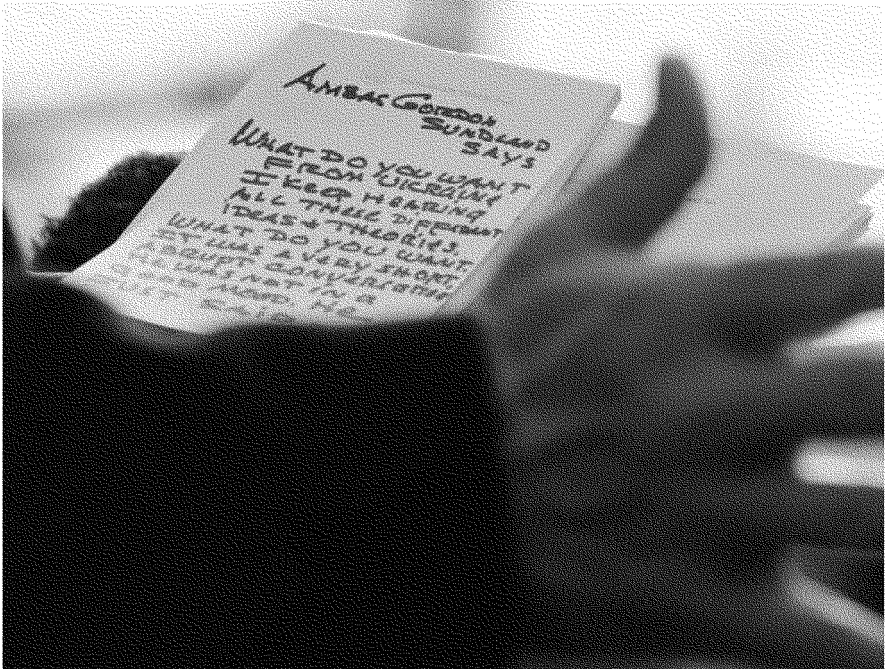 AMBAS GORDON
SUNDLAND
SAYS
WHAT DO YOU WANT
FROM UKRAINE
I KEEP HEARING
ALL THESE DIFFERENT
IDEAS & THEORIES.
WHAT DO YOU WANT
IT WAS A VERY SHORT,
ABRUPT CONVERSATION
HE WAS NOT IN A
GOOD MOOD. HE
JUST SAID